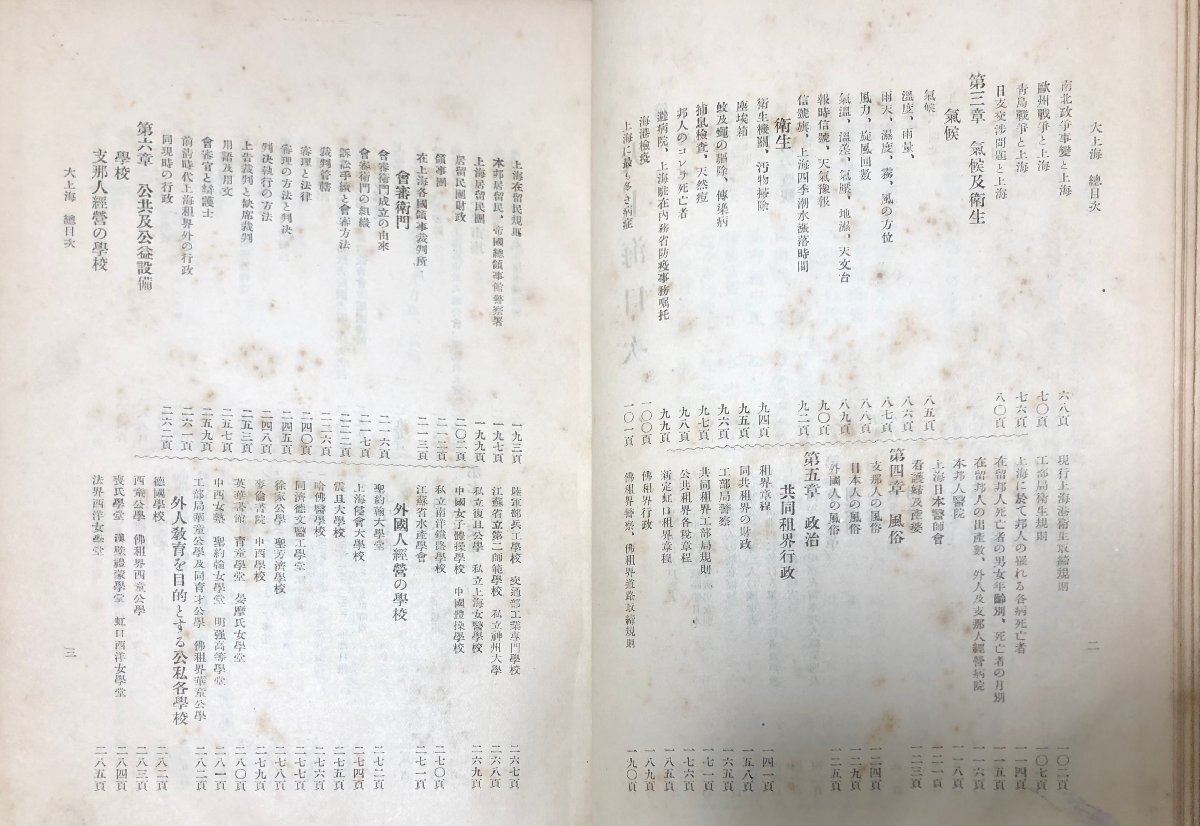 大上海　總目次
南北政爭事變と上海　六八頁
歐州戰爭と上海　七〇頁
青島戰爭と上海　七六頁
日支交涉問題と上海　八〇頁
第三章　氣候及衛生
氣候
氣候　八五頁
溫度、雨量、　八六頁
雨天、濕度、霧、風の方位　八七頁
風力、旋風回數　八八頁
氣溫、溫差、氣壓、地溫、天文台　八九頁
報時信號、天氣豫報　九〇頁
信號旗、上海四季潮水漲落時間　九二頁
衛生
衛生機關、汚物掃除　九四頁
塵埃箱　九五頁
蚊及蠅の驅除、傳染病　九六頁
捕鼠檢查、天然痘　九七頁
邦人のコレラ死亡者　九八頁
避病院、上海駐在內務省防疫事務囑托　九九頁
海港檢疫　一〇〇頁
上海に最も多き病症　一〇一頁
現行上海港衛生取締規則　一〇二頁
工部局衛生規則　一〇七頁
上海に於て邦人の罹れる各病死亡者　一一四頁
在留邦人死亡者の男女年齡別、死亡者の月別　一一五頁
在留邦人の出產數、外人及支那人經營病院　一一六頁
本邦人醫院　一一八頁
上海日本醫師會　一二一頁
看護婦及產婆　一二三頁
第四章　風俗
支那人の風俗　一二四頁
日本人の風俗　一二九頁
外國人の風俗　一三五頁
第五章　政治
共同租界行政
租界章程　一四一頁
同共租界の財政　一五八頁
工部局警察　一六五頁
共同租界工部局規則　一七一頁
公共租界各稅章程　一七六頁
新定虹口租界章程　一八五頁
佛租界行政　一八九頁
佛租界警察、佛租界道路取締規則　一九〇頁
二
上海在留民規則　一九三頁
本邦居留民、帝國總領事館警察署　一九七頁
上海居留民團　一九九頁
居留民團財政　二〇二頁
領事團　二一二頁
在上海各國領事裁判所　二一三頁
會審衙門
會審衙門成立の由來　二一六頁
會審衙門の組織　二一七頁
訴訟手續と會審方法　二二二頁
裁判管轄　二三六頁
審理と法律　二四〇頁
審理の方法と判決　二四五頁
判決執行の方法　二四八頁
上告裁判と缺席裁判　二五三頁
用語及用文　二五七頁
會審官と辯護士　二五九頁
前清時代上海租界外の行政　二六一頁
同現時の行政　二六二頁
第六章　公共及公益設備
學校
支那人經營の學校
陸軍部兵工學校　交通部工業專門學校　二六七頁
江蘇省立第二師範學校　私立神州大學　二六八頁
私立復旦公學　私立上海女醫學校　二六九頁
中國女子體操學校　中國體操學校
私立南洋鐵路學校　二七〇頁
江蘇省水產學會　二七一頁
外國人經營の學校
聖約翰大學堂　二七二頁
上海浸會大學校　二七四頁
震旦大學校　二七五頁
哈佛醫學校　二七六頁
同濟德文醫工學堂　二七七頁
徐家公學　聖芳濟學校　二七八頁
麥倫書院　中西學校　二七九頁
英華書館　育童學堂　晏摩氏女學堂　二八〇頁
中西女塾　聖約翰女學堂　明强高等學堂　二八一頁
工部局華童公學及同育才公學　佛租界華童公學　二八二頁
外人敎育を目的とする公私各學校
德國學校　二八二頁
西童公學　佛租界西童公學　二八三頁
喪氏學堂　漢璧禮蒙學堂　虹口西洋女學堂　二八四頁
法界西洋女藝堂　二八五頁
大上海　總目次
三